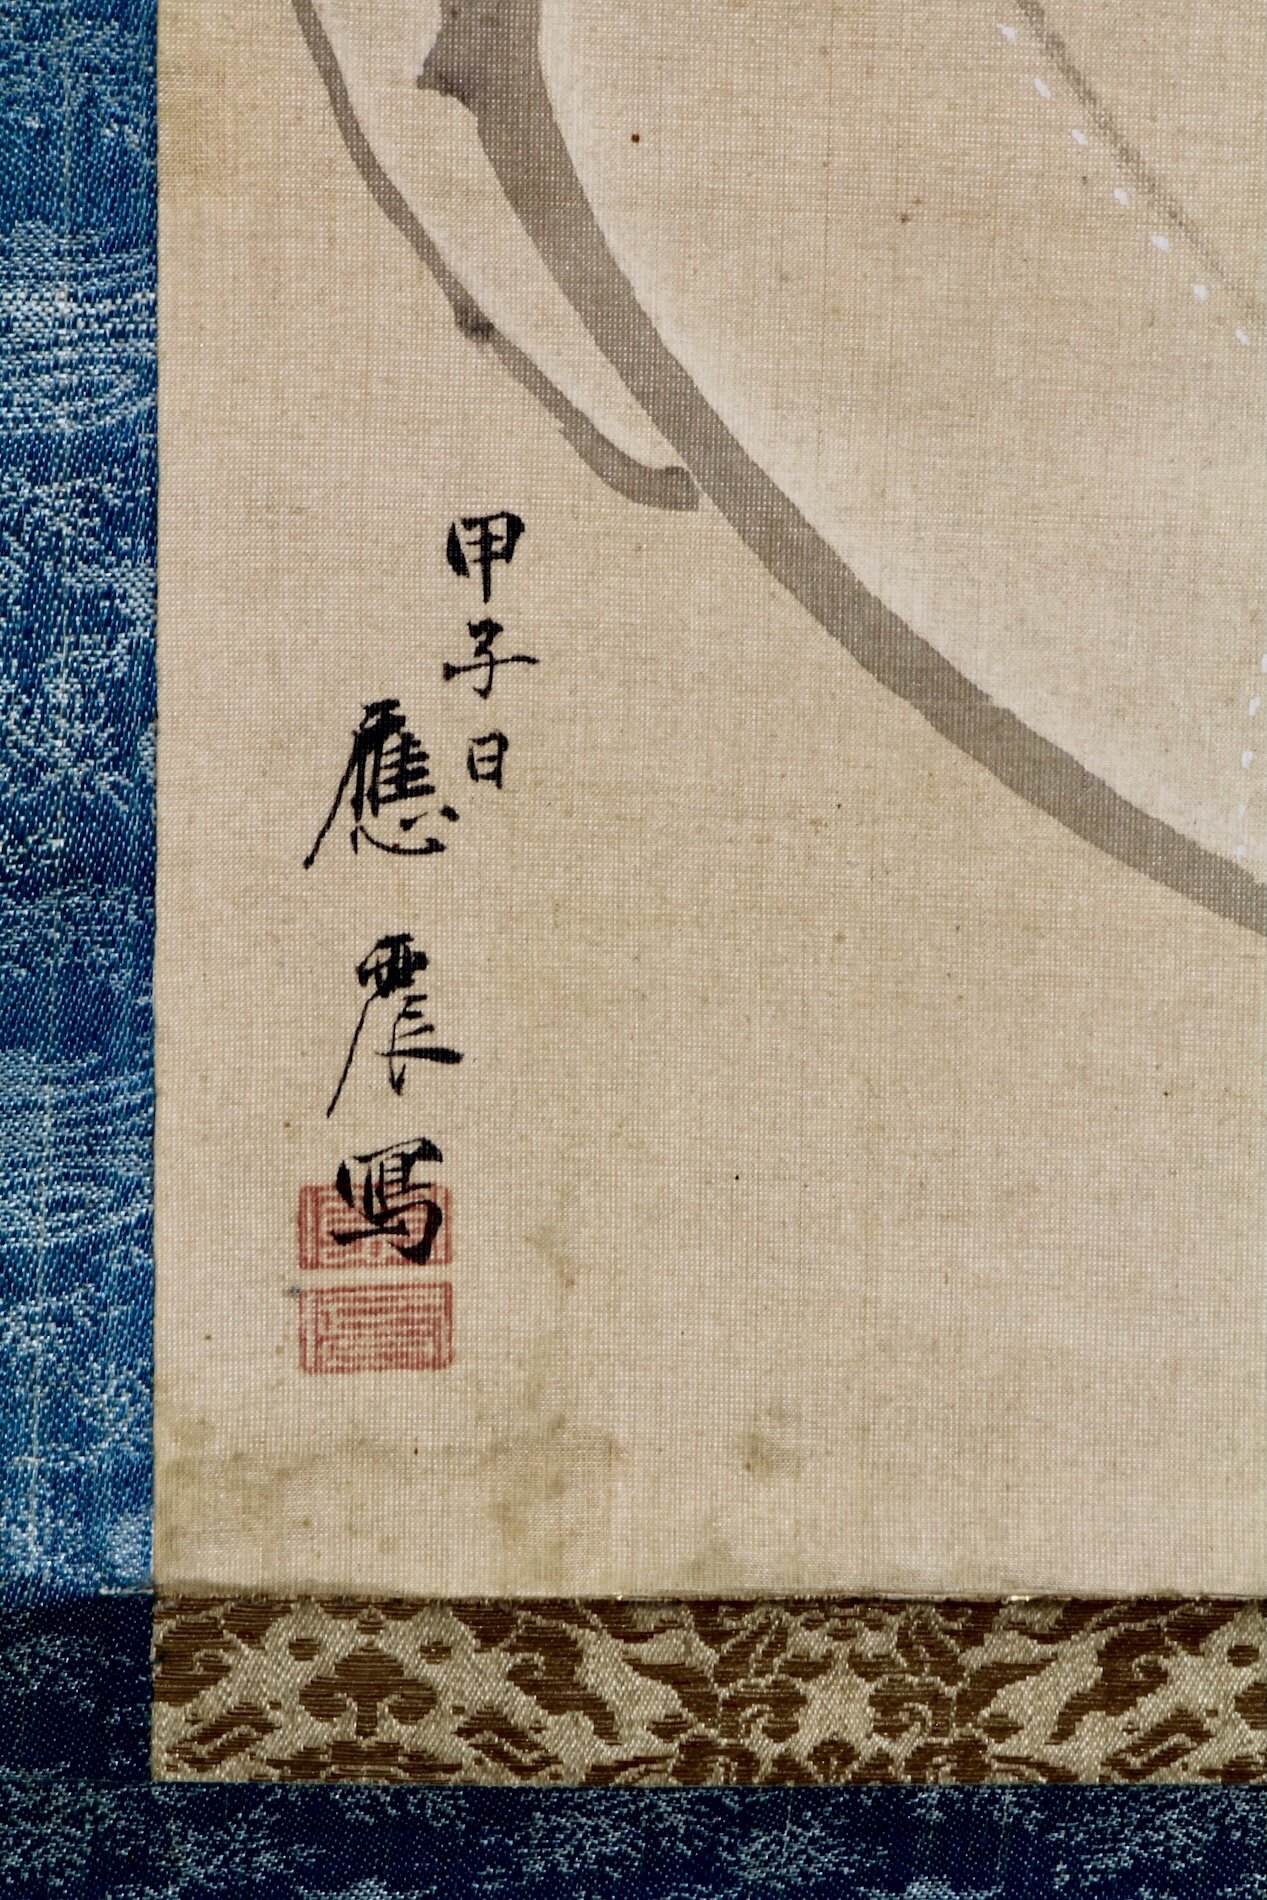 甲子日
應震寫